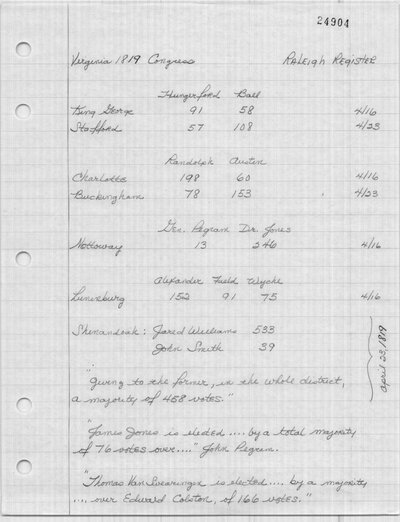 24904
Virginia 1819 Congress RALEIGH REGISTER
Hungerford Ball
King George 91 58 4/16
Stafford 57 108 4/23
Randolph Austin
Charlotte 198 60 4/16
Buckingham 78 153 4/23
Gen. Pegram Dr. Jones
Nottoway 13 246 4/16
Alexander Field Wyche
Lunenburg 152 91 75 4/16
Shenandoah: Jared Williams 533
John Smith 39
"Giving to the former, in the whole district,
a majority of 458 votes."
April 23, 1819
"James Jones is elected .... by a total majority
of 76 votes over...." John Pegram.
"Thomas Van Swearingen is elected.... by a majority
.... over Edward Colston, of 166 votes."